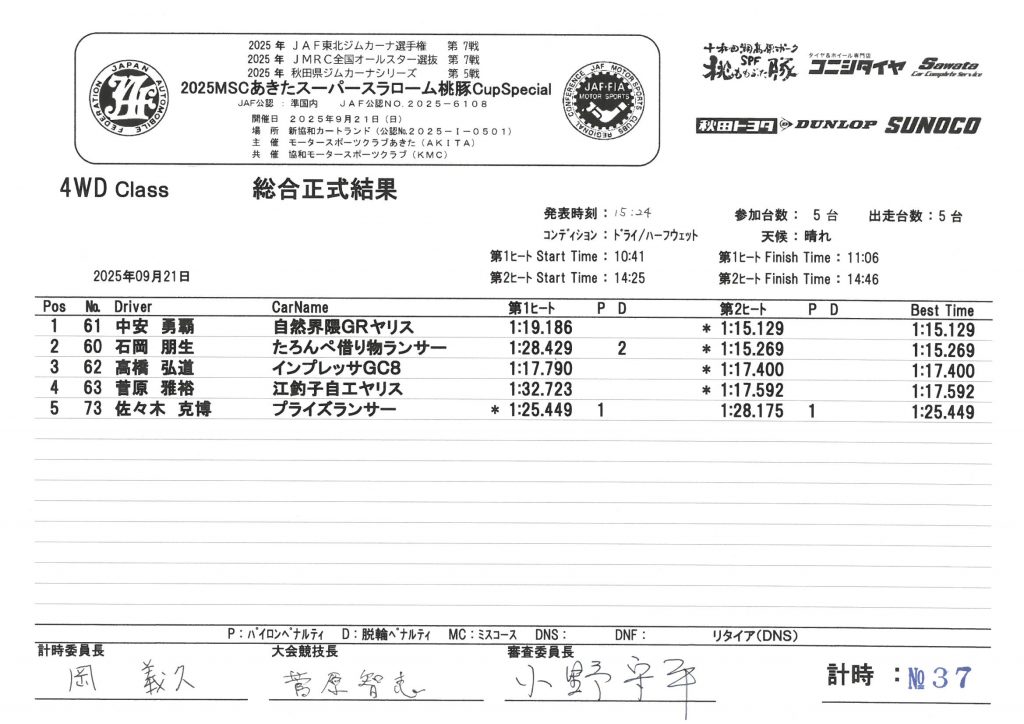 2025 年 JAF東北ジムカーナ選手権 第 7戦
2025 年 JMRC全国オールスター選抜 第 7戦
2025 年 秋田県ジムカーナシリーズ 第 5戦
2025MSCあきたスーパースラローム桃豚CupSpecial
JAF公認 : 準国内 JAF公認NO.2025-6108
開催日 2025年9月21日(日)
場 所 新協和カートランド(公認№2025-I-0501)
主 催 モータースポーツクラブあきた(AKITA)
共 催 協和モータースポーツクラブ(KMC)
JAPAN AUTOMOBILE FEDERATION
JAF
JAF MOTOR SPORTS CLUBS REGIONAL CONFERENCE
JAF·FIA
MOTOR SPORTS
十和田湖高原ポーク
SPF
桃ももぶた豚
タイヤ&ホイール専門店
コニシタイヤ
Sawata
Car Complete Service
秋田トヨタ
DUNLOP
SUNOCO
4WD Class 総合正式結果
発表時刻 : 15:24 参加台数 : 5 台 出走台数 : 5 台
コンディション : ドライ/ハーフウェット 天候 : 晴れ
第1ヒート Start Time : 10:41 第1ヒート Finish Time : 11:06
2025年09月21日 第2ヒート Start Time : 14:25 第2ヒート Finish Time : 14:46
Pos № Driver CarName 第1ヒート P D 第2ヒート P D Best Time
1 61 中安 勇覇 自然界隈GRヤリス 1:19.186 * 1:15.129 1:15.129
2 60 石岡 朋生 たろんぺ借り物ランサー 1:28.429 2 * 1:15.269 1:15.269
3 62 高橋 弘道 インプレッサGC8 1:17.790 * 1:17.400 1:17.400
4 63 菅原 雅裕 江釣子自工ヤリス 1:32.723 * 1:17.592 1:17.592
5 73 佐々木 克博 プライズランサー * 1:25.449 1 1:28.175 1 1:25.449
P : パイロンペナルティ D : 脱輪ペナルティ MC : ミスコース DNS : DNF : リタイア(DNS)
計時委員長 大会競技長 審査委員長
岡 義久 菅原智恵 小野守平
計時 : №37